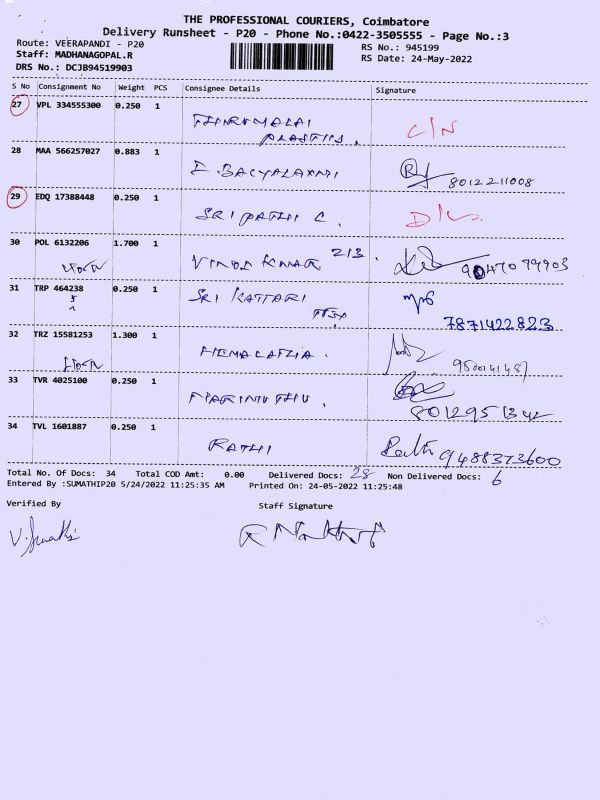 THE PROFESSIONAL COURIERS, Coimbatore
Delivery Runsheet - P20 - Phone No.:0422-3505555 - Page No.:3
Route: VEERAPANDI - P20
RS No.: 945199
Staff: MADHANAGOPAL.R
RS Date: 24-May-2022
DRS No.: DCJB94519903
S No Consignment No Weight PCS Consignee Details Signature
27 VPL 334555300 0.250 1
THIRUMALAI PLASTICS. C/N
28 MAA 566257027 0.883 1
E. BAGYALAXMI 8012211008
29 EDQ 17388448 0.250 1
SRIPATHI C. D/L
30 POL 6132206 1.700 1
VINOD KUMAR 213. 9047079903
31 TRP 464238 0.250 1
SRI KATTARI TEX 7871422823
32 TRZ 15581253 1.300 1
HEMALATHA.
33 TVR 4025100 0.250 1
MARIMUTHU. 8012951342
34 TVL 1601887 0.250 1
RATHI 9488373600
Total No. Of Docs: 34 Total COD Amt: 0.00 Delivered Docs: 28 Non Delivered Docs: 6
Entered By :SUMATHIP20 5/24/2022 11:25:35 AM Printed On: 24-05-2022 11:25:48
Verified By Staff Signature